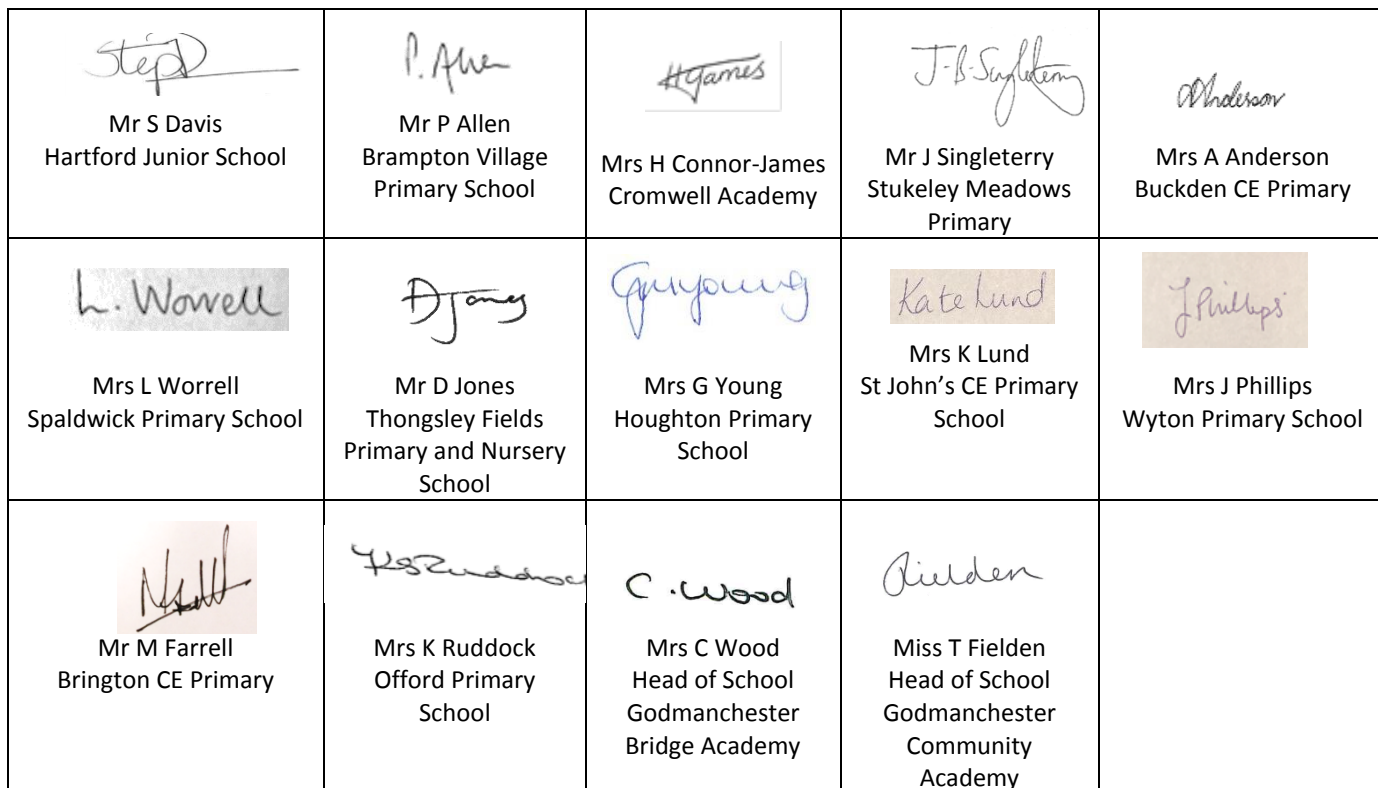 P. Allen
Mr S Davis
Hartford Junior School
Mr P Allen
Brampton Village
Primary School
HJames
Mrs H Connor-James
Cromwell Academy
J-B-Singleterry
Mr J Singleterry
Stukeley Meadows
Primary
AAnderson
Mrs A Anderson
Buckden CE Primary
L. Worrell
Mrs L Worrell
Spaldwick Primary School
D Jones
Mr D Jones
Thongsley Fields
Primary and Nursery
School
GMYoung
Mrs G Young
Houghton Primary
School
Kate Lund
Mrs K Lund
St John’s CE Primary
School
J Phillips
Mrs J Phillips
Wyton Primary School
Mr M Farrell
Brington CE Primary
Mrs K Ruddock
Offord Primary
School
C. Wood
Mrs C Wood
Head of School
Godmanchester
Bridge Academy
Miss T Fielden
Head of School
Godmanchester
Community
Academy